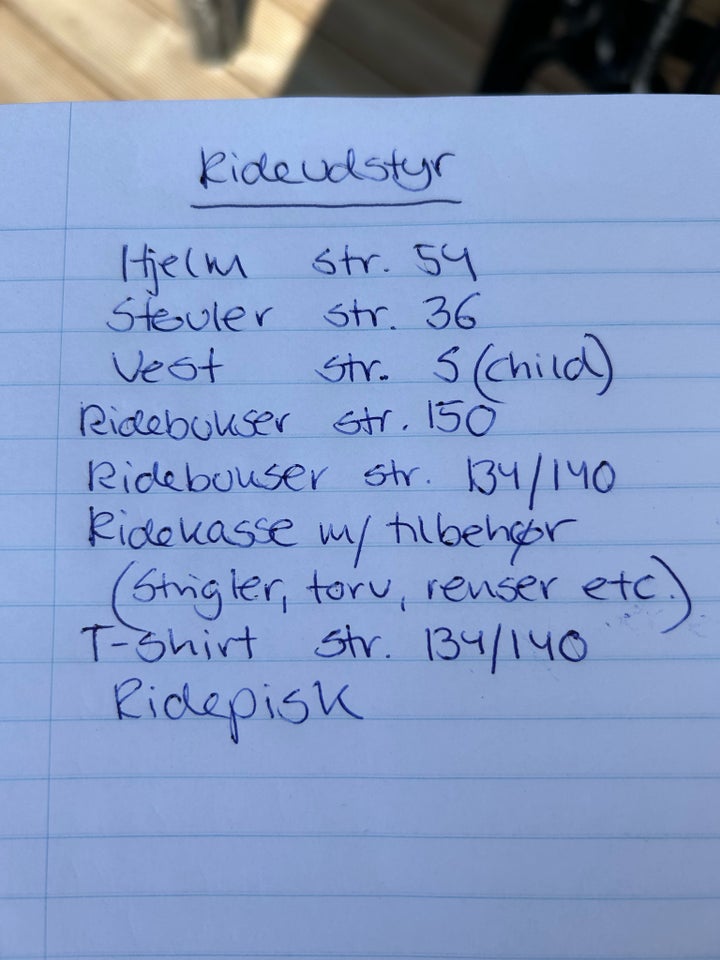 Rideudstyr
Hjelm str. 54
Støvler str. 36
Vest str. S (child)
Ridebukser str. 150
Ridebukser str. 134/140
Ridekasse m/ tilbehør
(Strigler, torv, renser etc.)
T-Shirt str. 134/140
Ridepisk